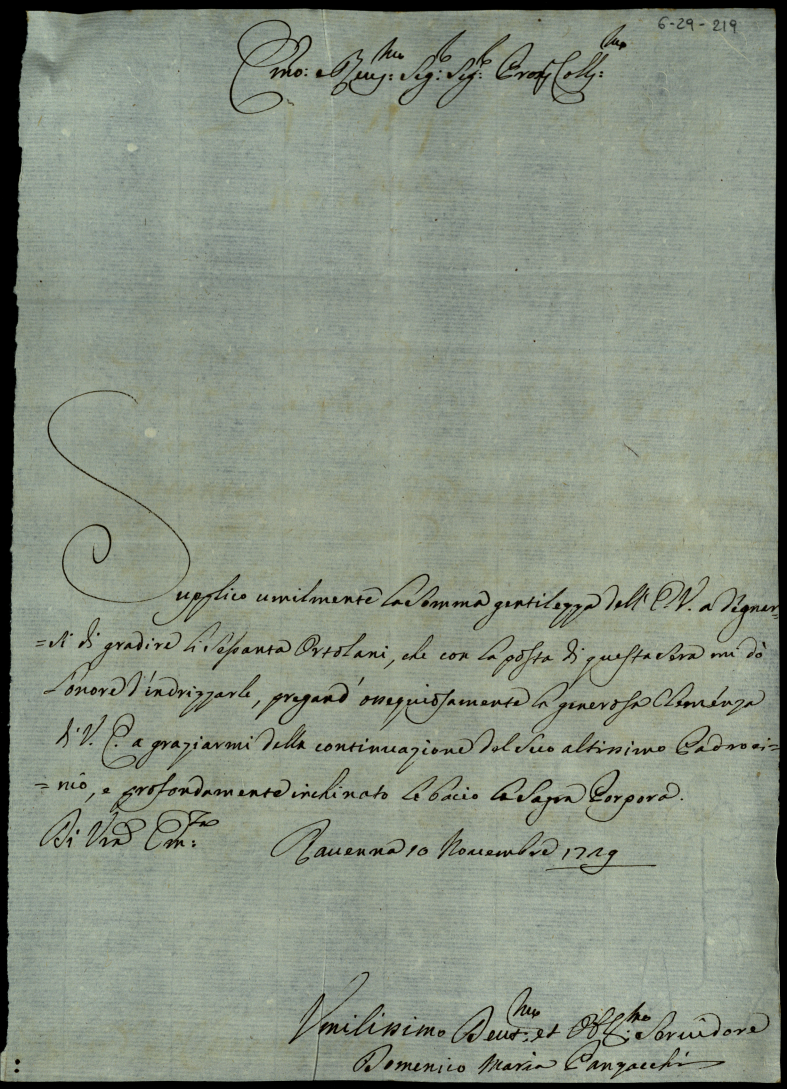 6-29-219
Emo: e Reu:mo Sig:r Sig:r Pron Coll:mo
Supplico umilmente la somma gentilezza dell' E.V. a degnar-
=si di gradire li sessanta Ortolani, che con la posta di questa sera mi dò
l'onore d'indrizzarle, pregand' ossequiosamente la generosa Clemenza
di V. E. a graziarmi della continuazione del suo altissimo Padroci-
=nio, e profondamente inchinato le bacio la Sagra Porpora.
Di Vra Em:za Ravenna 10 Novembre 1729
Vmilissimo Deuot:mo et Obl:mo Seruidore
Domenico Maria